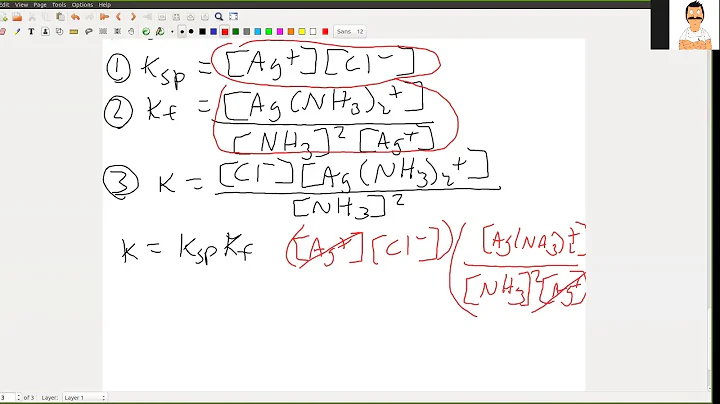 Edit View Journal Tools Options Help
Sans 12
① Ksp = [Ag⁺][Cl⁻]
② Kf = [Ag(NH₃)₂⁺]
[NH₃]² [Ag⁺]
③ K = [Cl⁻][Ag(NH₃)₂⁺]
[NH₃]²
K = Ksp Kf ([Ag⁺][Cl⁻]) ( [Ag(NA3)₂⁺]
[NH₃]²[Ag⁺]
3 of 3 Layer: Layer 1